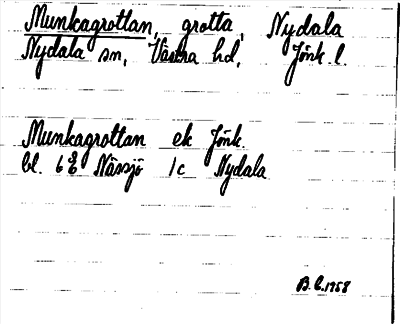 Munkagrottan, grotta, Nydala
Nydala sn, Västra hd, Jönk. l.
Munkagrottan ek Jönk.
bl. 6E Nässjö 1c Nydala
B.L. 1958